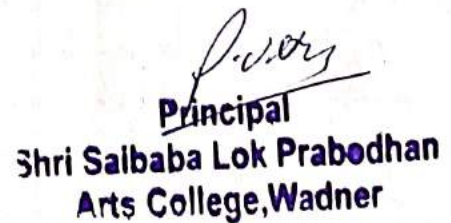 Principal
Shri Saibaba Lok Prabodhan
Arts College,Wadner